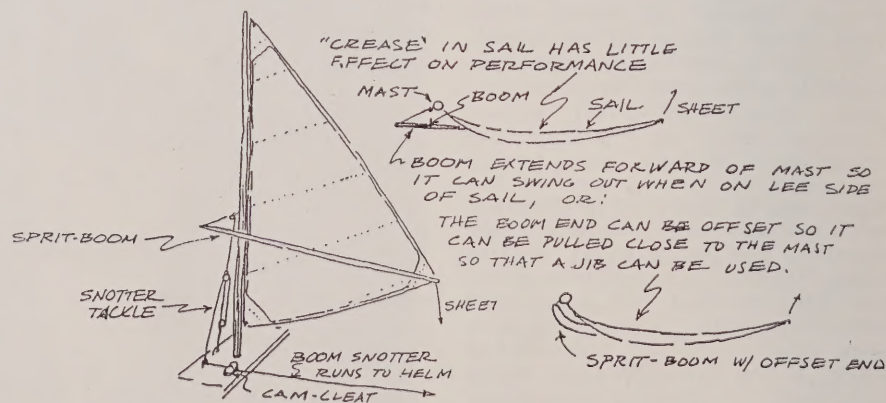 "CREASE" IN SAIL HAS LITTLE
EFFECT ON PERFORMANCE
MAST
BOOM
SAIL
SHEET
BOOM EXTENDS FORWARD OF MAST SO
IT CAN SWING OUT WHEN ON LEE SIDE
OF SAIL, OR:
THE BOOM END CAN BE OFFSET SO IT
CAN BE PULLED CLOSE TO THE MAST
SO THAT A JIB CAN BE USED.
SPRIT-BOOM
SNOTTER
TACKLE
SHEET
SPRIT-BOOM W/ OFFSET END
BOOM SNOTTER
RUNS TO HELM
CAM-CLEAT